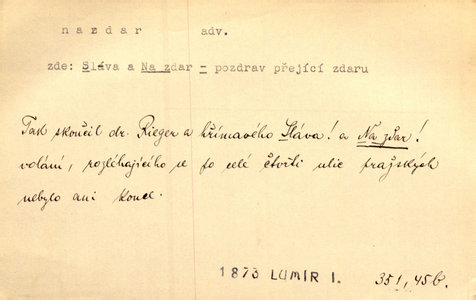 nazdar adv.
zde: Sláva a Na zdar - pozdrav přející zdaru
Tak skončil dr. Rieger a hřímavého Sláva! a Na zdar!
volání, rozléhajícího se po celé čtvrti ulic pražských
nebylo ani konce.
1873 LUMÍR I. 351, 45b.